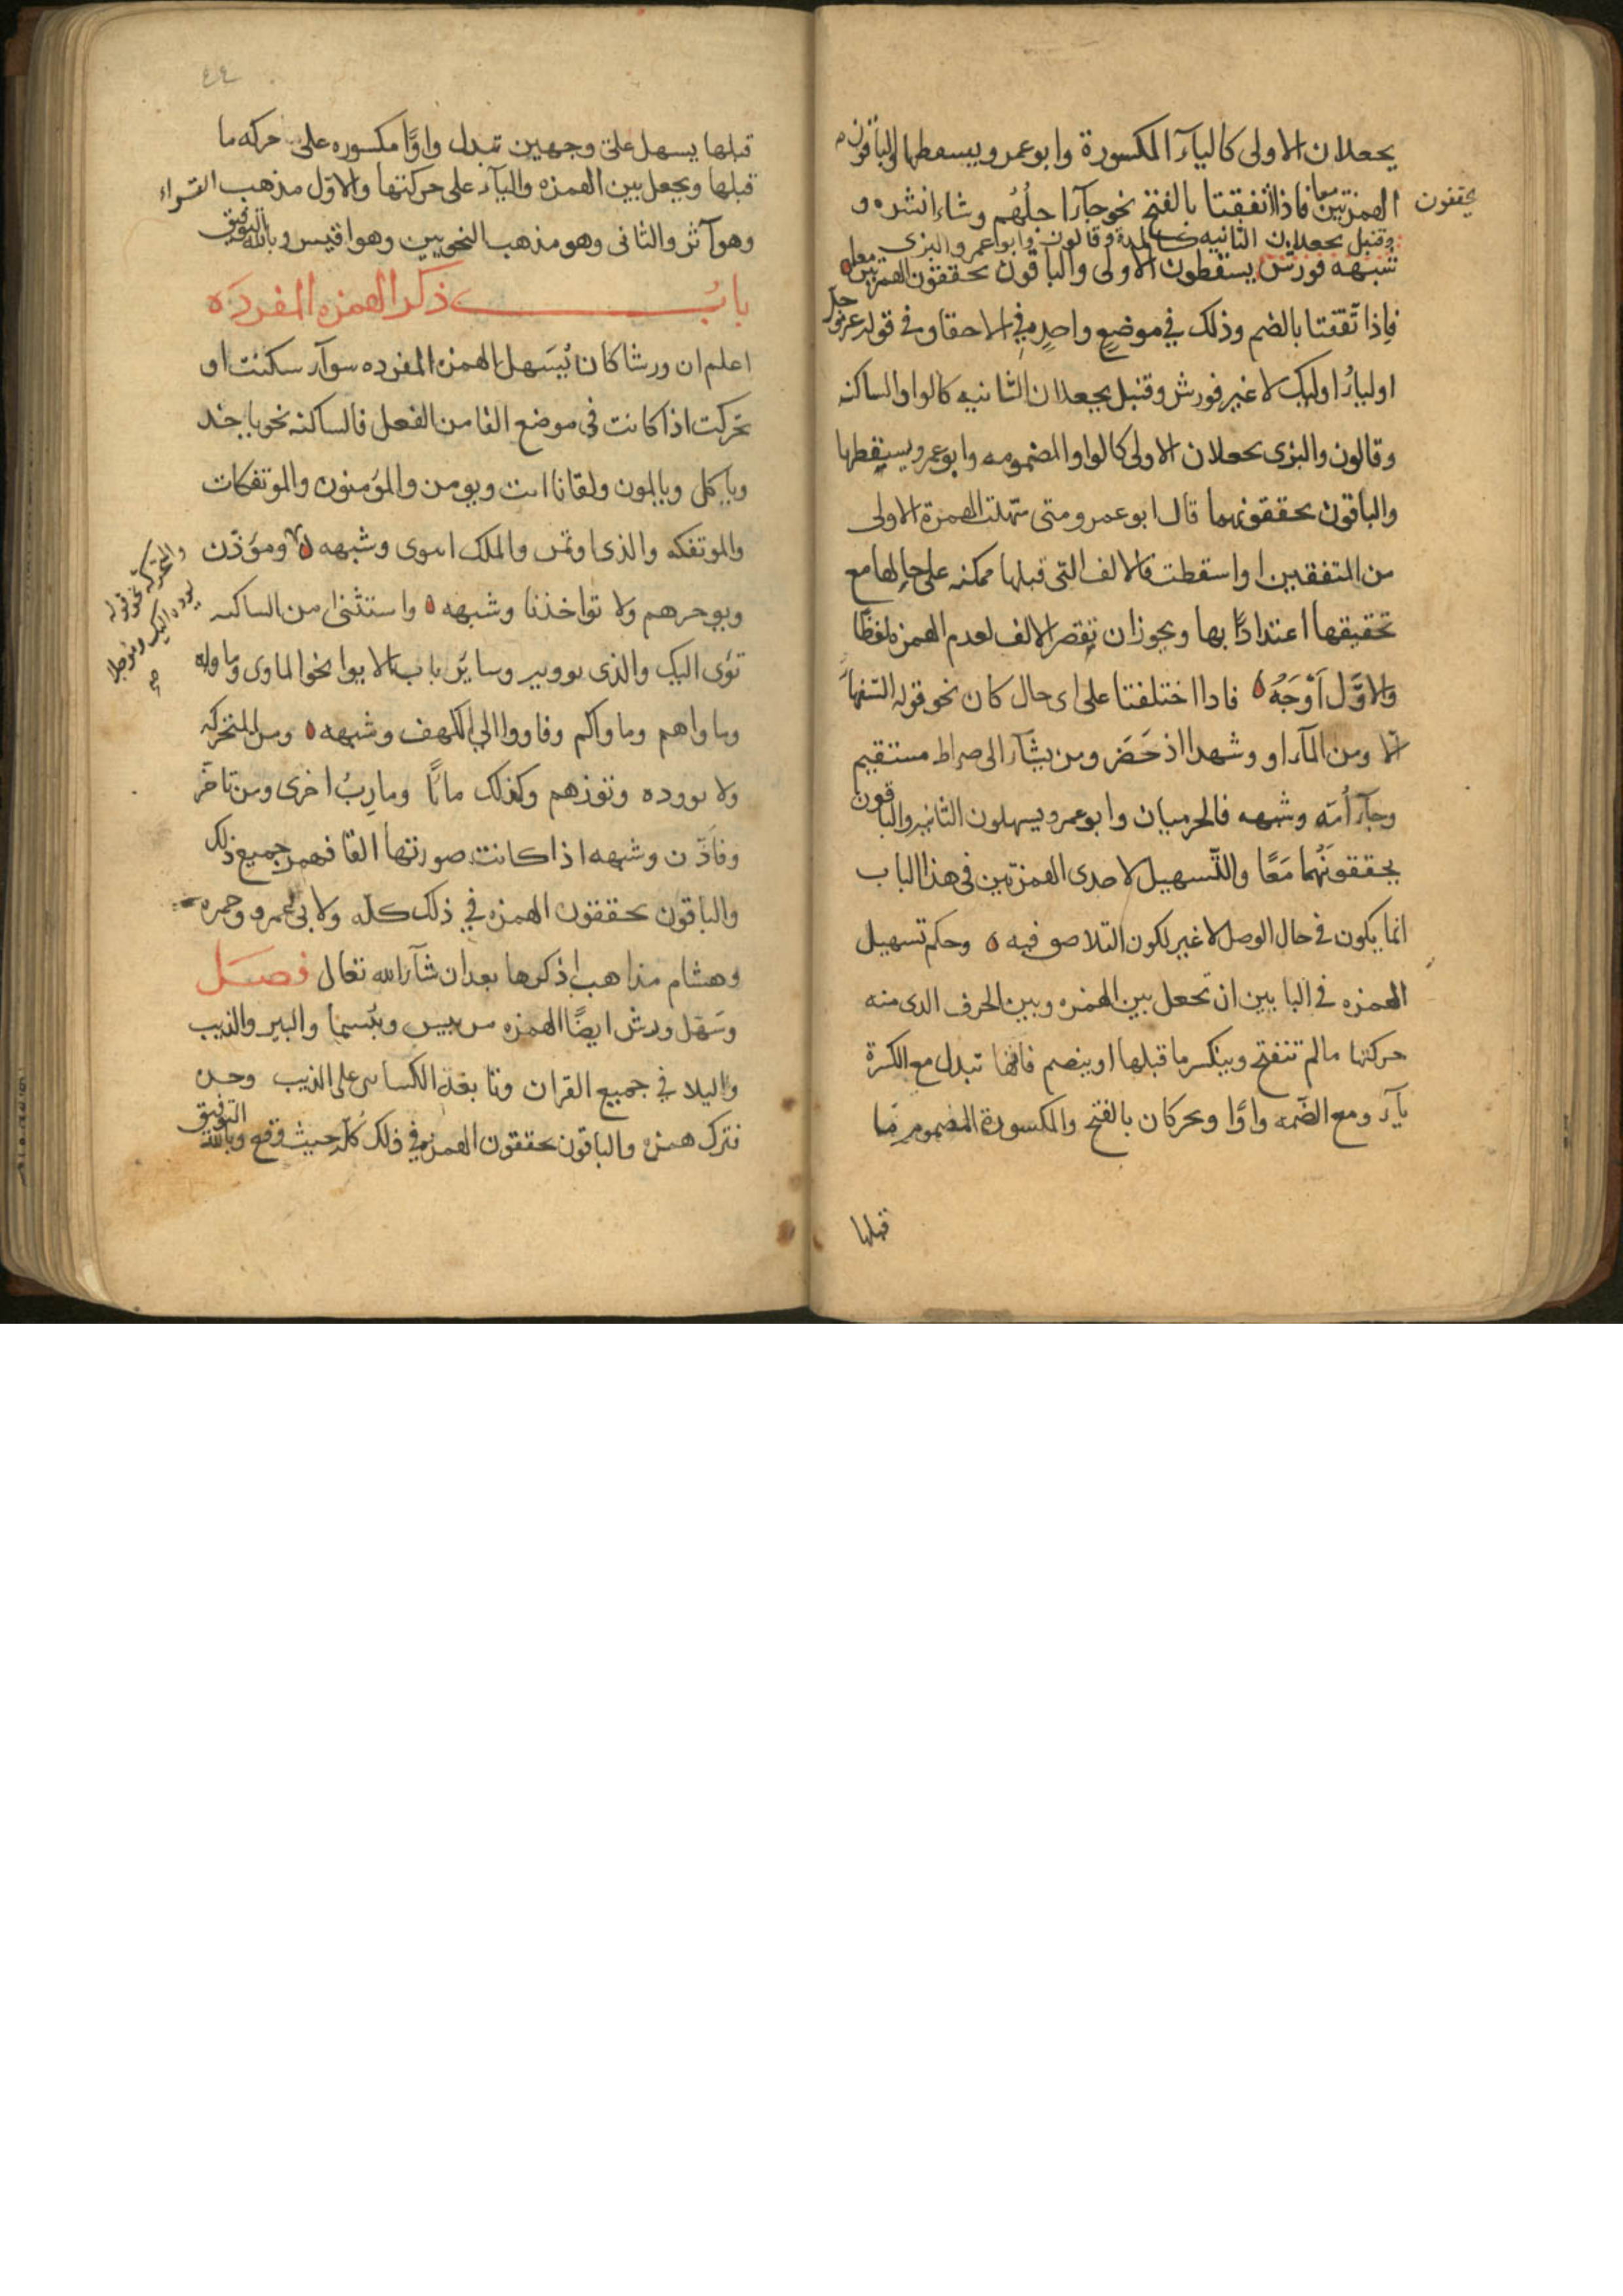 يجعلان الاولى كالياء المكسورة وابو عمرو يسقطها والباقون
يحققون
الهمزتين معا فاذا اتفقتا بالفتح نحو جآ اجلُهُم وشاء انشره و
وقنبل يجعلان الثانيه كالمدة وقالون وابو عمرو والبزى
شبهه فورش يسقطون الاولى والباقون يحققون الهمزتين معا
فاِذا اتّفقتا بالضم وذلك في موضعٍ واحدٍ في الاحقاف في قوله عز وجل
اولياءُ اوليك لا غير فورش وقنبل يجعلان الثانيه كالواو الساكنه
وقالون والبزى يجعلان الاولى كالواو المضمومه وابو عمرو يسقطها
والباقون يحققونهما قال ابو عمرو ومتى سهلت الهمزة الاولى
من المتفقين او اسقطت فالالف التى قبلها ممكنه على حالها مع
تحقيقها اعتدادًا بها ويجوز ان تقصر الالف لعدم الهمزه لفظًا
والاوَّل اَوْجَهُ فاذا اختلفتا على اى حال كان نحو قوله السفهآ
الا ومن المآء او وشهدا اذ حَضَر ومن يشآء الى صراط مستقيم
وجآء اُمّة وشبهه فالحرميان وابو عمرو يسهلون الثانيه والباقون
يحققونَهُما مَعًا والتَّسهيل لاحدى الهمزتين في هذا الباب
انما يكون في حال الوصل لا غير لكون التلاصق فيه وحكم تسهيل
الهمزه في البابين ان تجعل بين الهمزه وبين الحرف الذى منه
حركتها ما لم تنفتح وينكسر ما قبلها او ينضم فانها تبدل مع الكسرة
يآء ومع الضمه واوًا ويحركان بالفتح والمكسورة المضموم ما
قبلها
٤٤
قبلها يسهل على وجهين تبدل واوًا مكسوره على حركه ما
قبلها ويجعل بين الهمزه والياء على حركتها والاول مذهب القراء
وهو آثر والثانى وهو مذهب النحويين وهو اقيس وبالله التوفيق
بابُ ذكر الهمزه المفردَه
اعلم ان ورشا كان يُسَهل الهمزه المفرده سوآء سكنت او
تحركت اذا كانت في موضع الفا من الفعل فالساكنه نحو ياخذ
وياكل ويالمون ولقانا ات ويومن والمؤمنون والموتفكات
والموتفكه والذى اوتمن والملك ايتونى وشبهه ومؤذّن
والمتحركه نحو قوله يوده اليك ومؤجلا
صح
ويوخرهم ولا تواخذنا وشبهه واستثنى من الساكنه
تؤى اليك والذى توويه وساير باب الايوا نحو الماوى وماوله
وماواهم وماواكم وفاووا الى الكهف وشبهه ومن المتحركه
ولا يووده وتوزهم وكذلك مابًا ومارِبُ اخرى ومن تاخّر
وفاذّن وشبهه اذا كانت صورتها الفا فهمز جميع ذلك
والباقون يحققون الهمزه في ذلك كله ولابى عمرو وحمزه
وهشام مذاهب اذكرها بعد ان شآء الله تعالى فصَل
وسَهّل ورش ايضًا الهمزه من بيس وبئسما والبير والذيب
واليلا في جميع القران وتابعه الكسائى على الذيب وحده
فترك همزه والباقون يحققون الهمزه في ذلك كله حيث وقع وبالله التوفيق